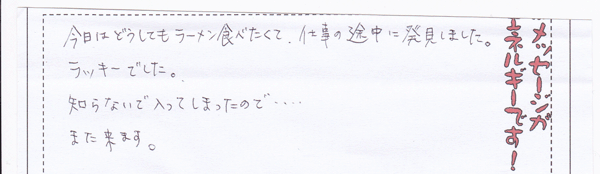 今日はどうしてもラーメン食べたくて、仕事の途中に発見しました。
ラッキーでした。
知らないで入ってしまったので‥‥
また来ます。
メッセージが
エネルギーです!